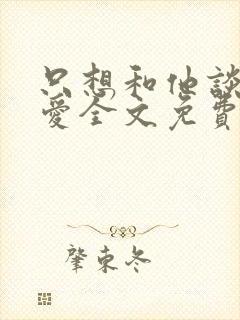 只想和他談
愛全文免費
肇東冬